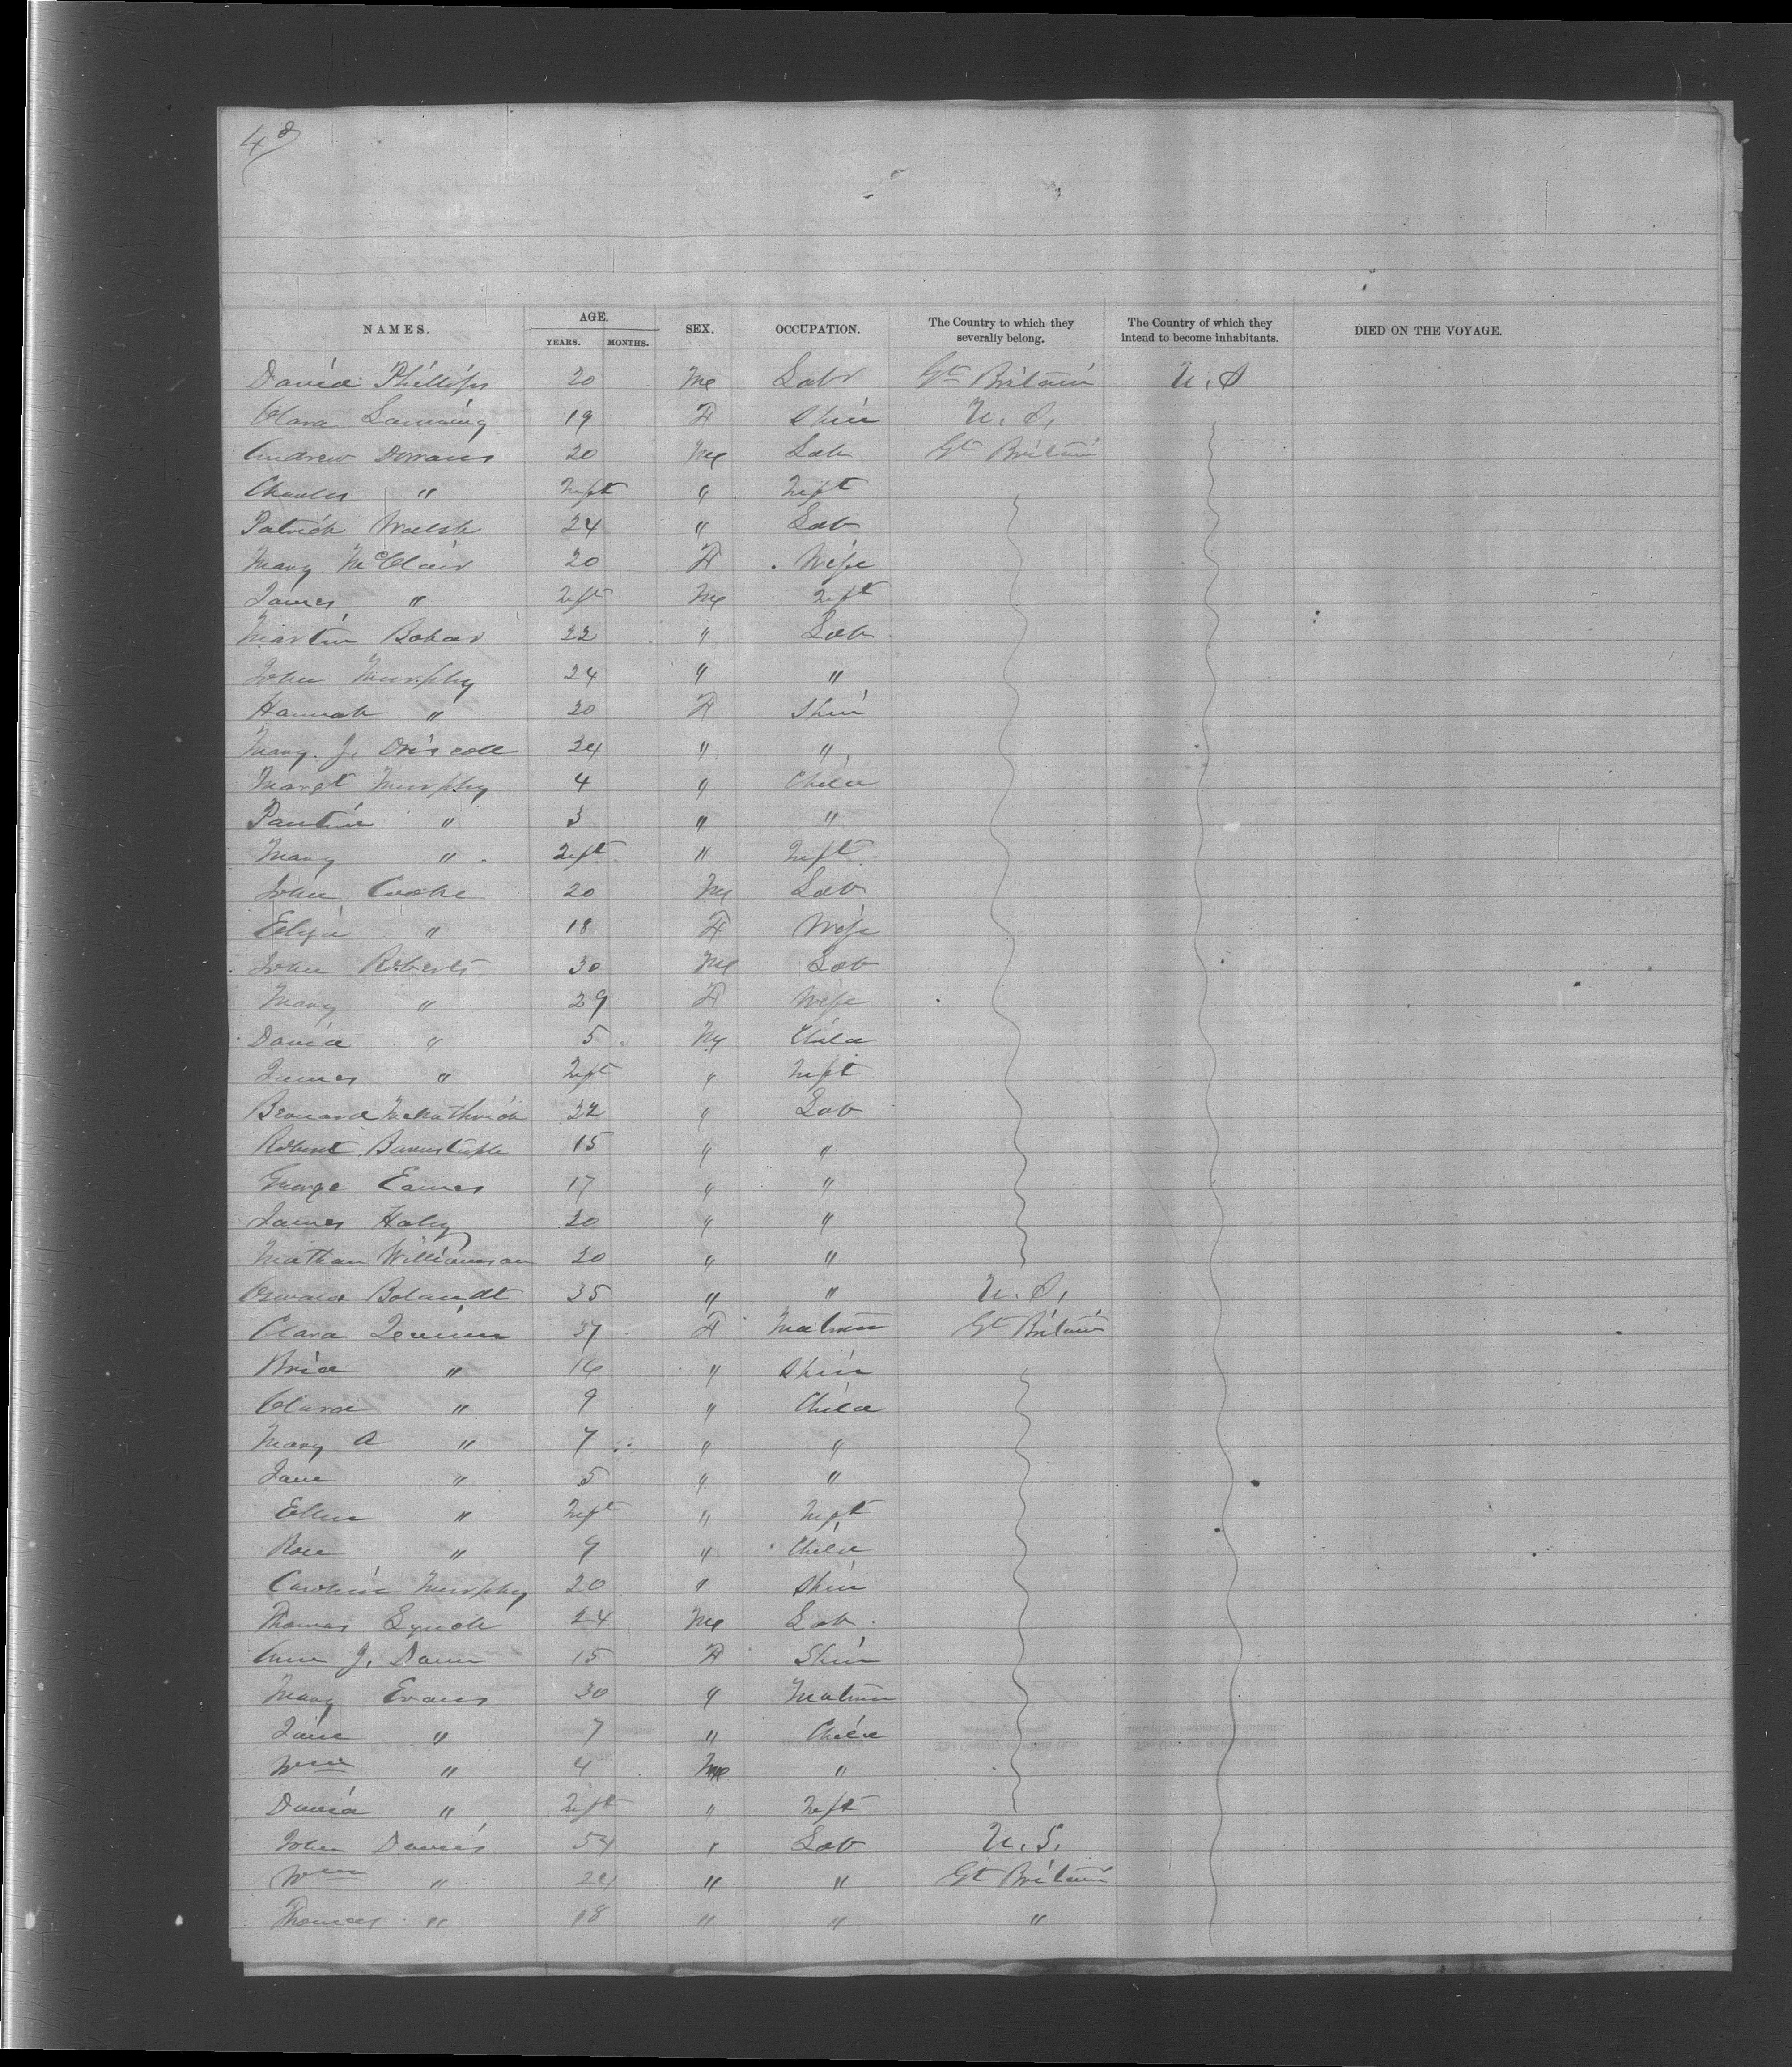 4
NAMES. AGE. SEX. OCCUPATION. The Country to which they severally belong. The Country of which they intend to become inhabitants. DIED ON THE VOYAGE.
YEARS. MONTHS.
David Phillips 20 M Labr Gt Britain U.S
Clara 19 F Spin U.S.
Andrew 20 M Lab Gt Britain
Charles " Inft " Inft
Patrick Walsh 24 " Lab
Mary McClair 20 F Wife
James " Inft M Inft
Martin 22 " Lab
John Murphy 24 " "
Hannah " 20 F Spin
Mary J. Driscoll 24 " "
Margt Murphy 4 " Child
" 3 " "
Mary " Inft " Inft
John Cooke 20 M Lab
Eliza " 18 F Wife
John Roberts 30 M Lab
Mary " 29 F Wife
David " 5 M Child
James " Inft " Inft
Bernard 22 " Lab
Robert 15 " "
George Eames 17 " "
James 20 " "
Nathan Williamson 20 " "
Oswald 35 " " U.S.
Clara 37 F Matron Gt Britain
" 16 " Spin
" 9 " Child
Mary A " 7 " "
Jane " 5 " "
Ellen " Inft " Inft
Rose " 9 " Child
Caroline Murphy 20 " Spin
Thomas Lynch 24 M Lab
Ann J. 15 F Spin
Mary Evans 30 " Matron
Jane " 7 " Child
Wm " 4 M "
David " Inft " Inft
John Davies 54 " Lab U.S.
Wm " 24 " " Gt Britain
Thomas " 18 " " "